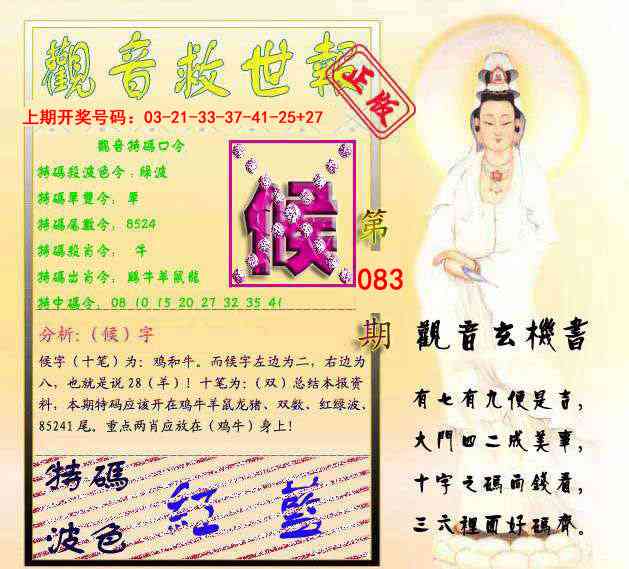 觀音救世報
正版
上期开奖号码：03-21-33-37-41-25+27
觀音特碼口令
特碼殺波色令：綠波
特碼單雙令： 單
特碼尾數令： 8524
特碼殺肖令： 牛
特碼出肖令： 鷄牛羊鼠龍
特中碼令： 08 10 15 20 27 32 35 41
候
第
083
期
分析:（候）字
候字（十笔）为：鸡和牛。而候字左边为二，右边为
八，也就是说 28（羊）！十笔为：（双）总结本报资
料，本期特码应该开在鸡牛羊鼠龙猪、双数、红绿波、
85241 尾。重点两肖应放在（鸡牛）身上！
特碼
波色
紅 藍
觀音玄機書
有七有九便是吉，
大門四二成美事，
十字之碼面錢看，
三六裡面好碼齊。